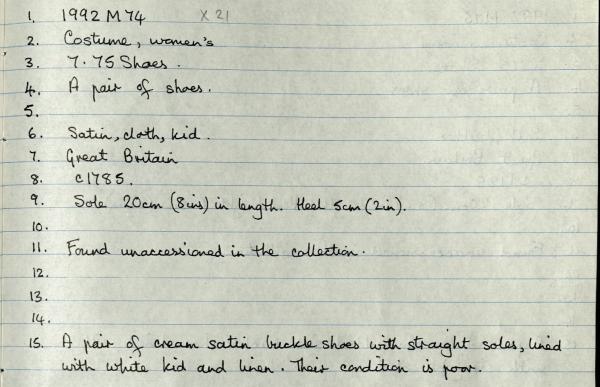 1. 1992 M 74 X 21
2. Costume, women's
3. 7.75 Shoes.
4. A pair of shoes.
5.
6. Satin, cloth, kid.
7. Great Britain
8. c1785.
9. Sole 20cm (8ins) in length. Heel 5cm (2in).
10.
11. Found unaccessioned in the collection.
12.
13.
14.
15. A pair of cream satin buckle shoes with straight soles, lined
with white kid and linen. Their condition is poor.